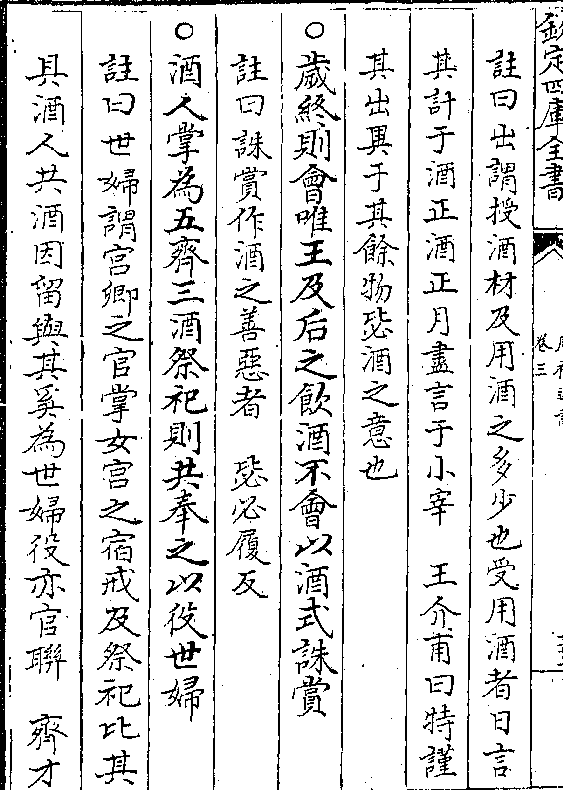 欽定四庫全書
卷三
註曰出謂授酒材及用酒之多少也受用酒者日言
其計于酒正酒正月盡言于小宰　王介甫曰特謹
其出異于其餘物毖酒之意也
○歲終則會唯王及后之飲酒不會以酒式誅賞
註曰誅賞作酒之善惡者　毖必履反
○酒人掌為五齊三酒祭祀則共奉之以役世婦
註曰世婦謂宫卿之官掌女宫之宿戒及祭祀比其
具酒人共酒因留與其奚為世婦役亦官聯　齊才